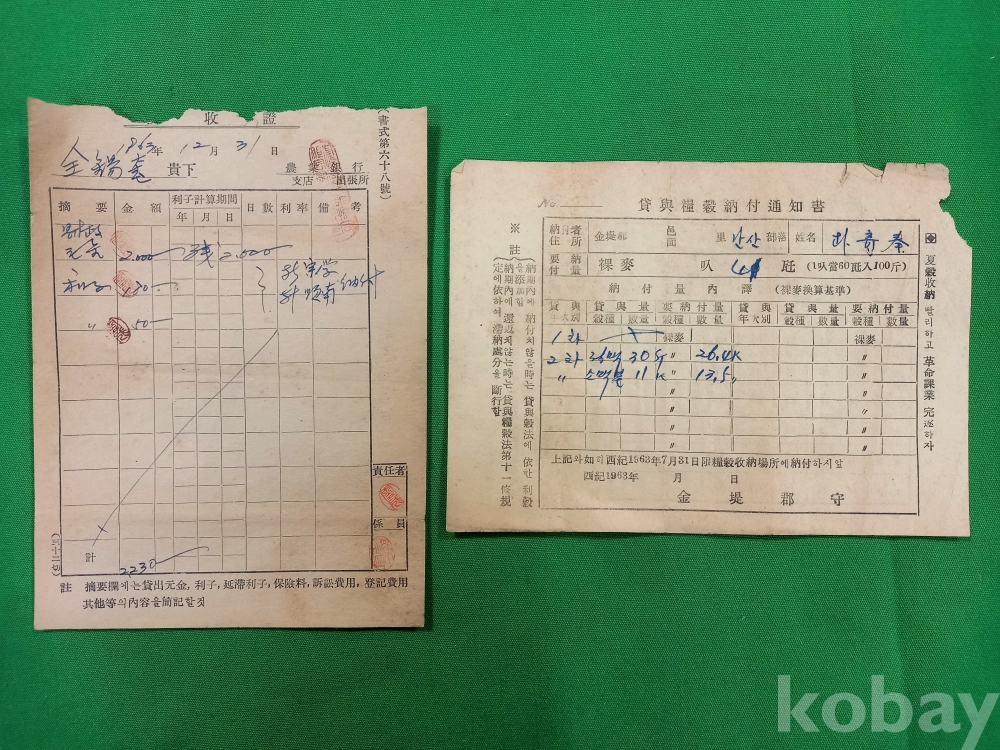 收 證
1963年 12月 31日
貴下
農業銀行
支店 出張所
(書式第六十八號)
摘要 金額 利子計算期間 日數 利率 備考
年 月 日
2,000 残 2,000
50
責任者
係員
計
2230
註 摘要欄에는貸出元金, 利子, 延滯利子, 保險料, 訴訟費用, 登記費用
其他等의內容을簡記할것
No.
貸與糧穀納付通知書
納付者住所 金堤郡 邑面 里 난산 部落 姓名
要納付量 裸麥 叺 瓩 (1叺當60瓩入100斤)
納付量內譯 (裸麥換算基準)
貸與年次別 貸與量 要納付量 貸與年次別 貸與量 要納付量
穀種 數量 穀種 數量 穀種 數量 穀種 數量
1차 裸麥 裸麥
2차 30 〃 26.4K 〃
〃 소맥분 11K 〃 13.5〃 〃
〃 〃
〃 〃
〃 〃
〃 〃
上記와如히西紀1963年7月31日限糧穀收納場所에納付하시압
西紀1963年 月 日
金堤郡守
夏穀收納 빨리하고 革命課業 完遂하자
※ 註
納期內에 納付치 않을時는 貸與穀法에 依한 利穀
을添加함
納期內에 還返치않는時는 貸與糧穀法第十一條規
定에依하여 滯納處分을 斷行함
kobay